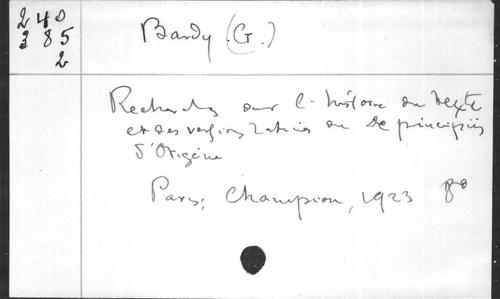 240
385
2
Bardy (G.)
Recherches sur l'histoire du texte
et des versions latines du De principiis
d'Origène
Paris, Champion, 1923 8º